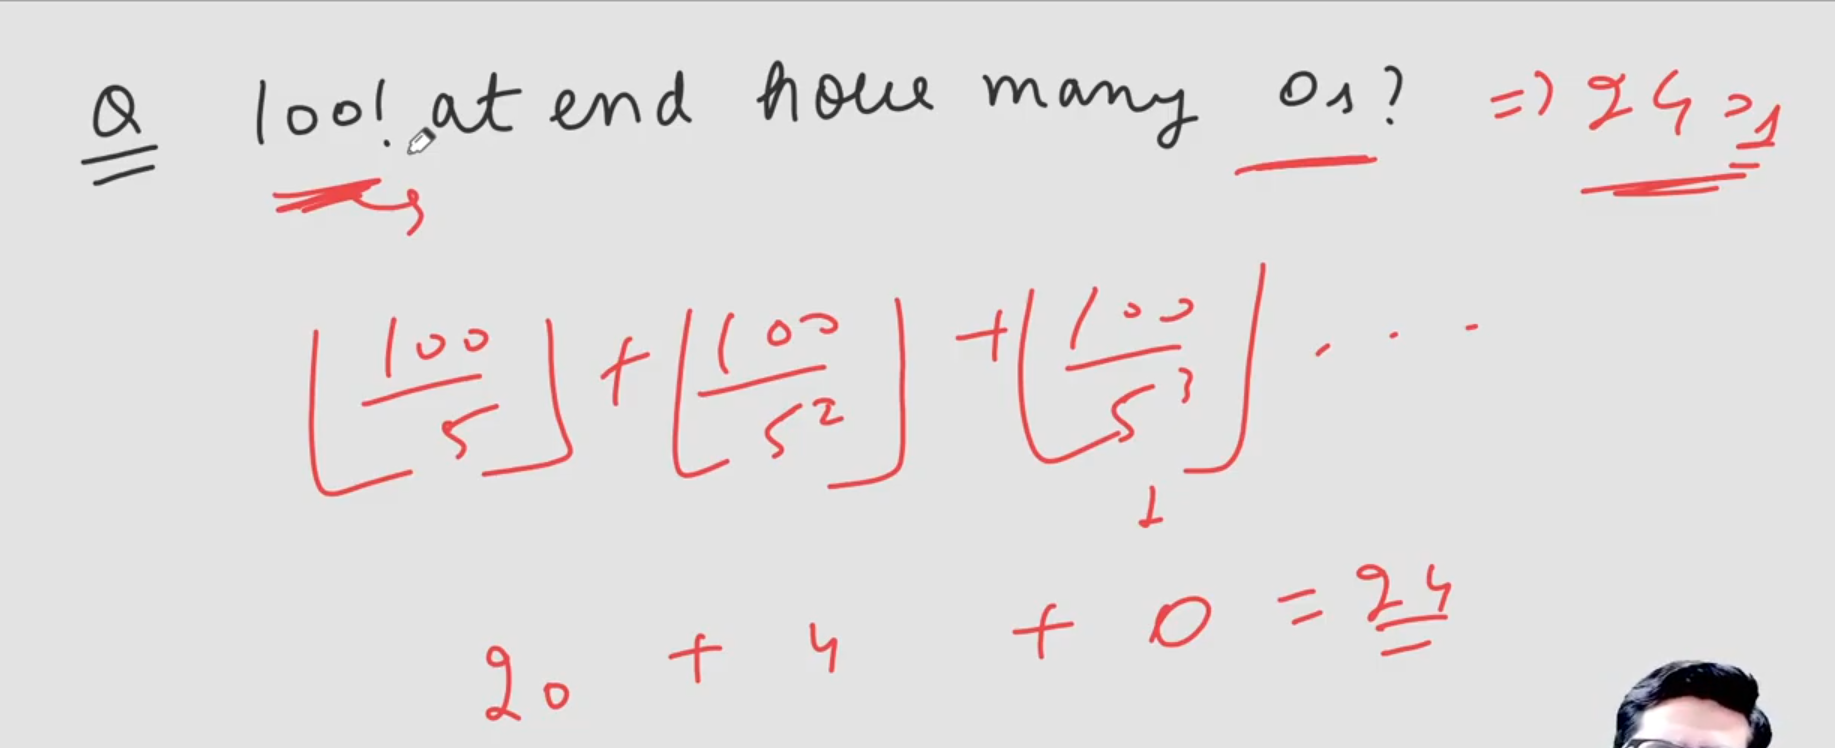 Q 100! at end how many 0s? => 24 0s
⌊100/5⌋ + ⌊100/5²⌋ + ⌊100/5³⌋ . . .
1
20 + 4 + 0 = 24